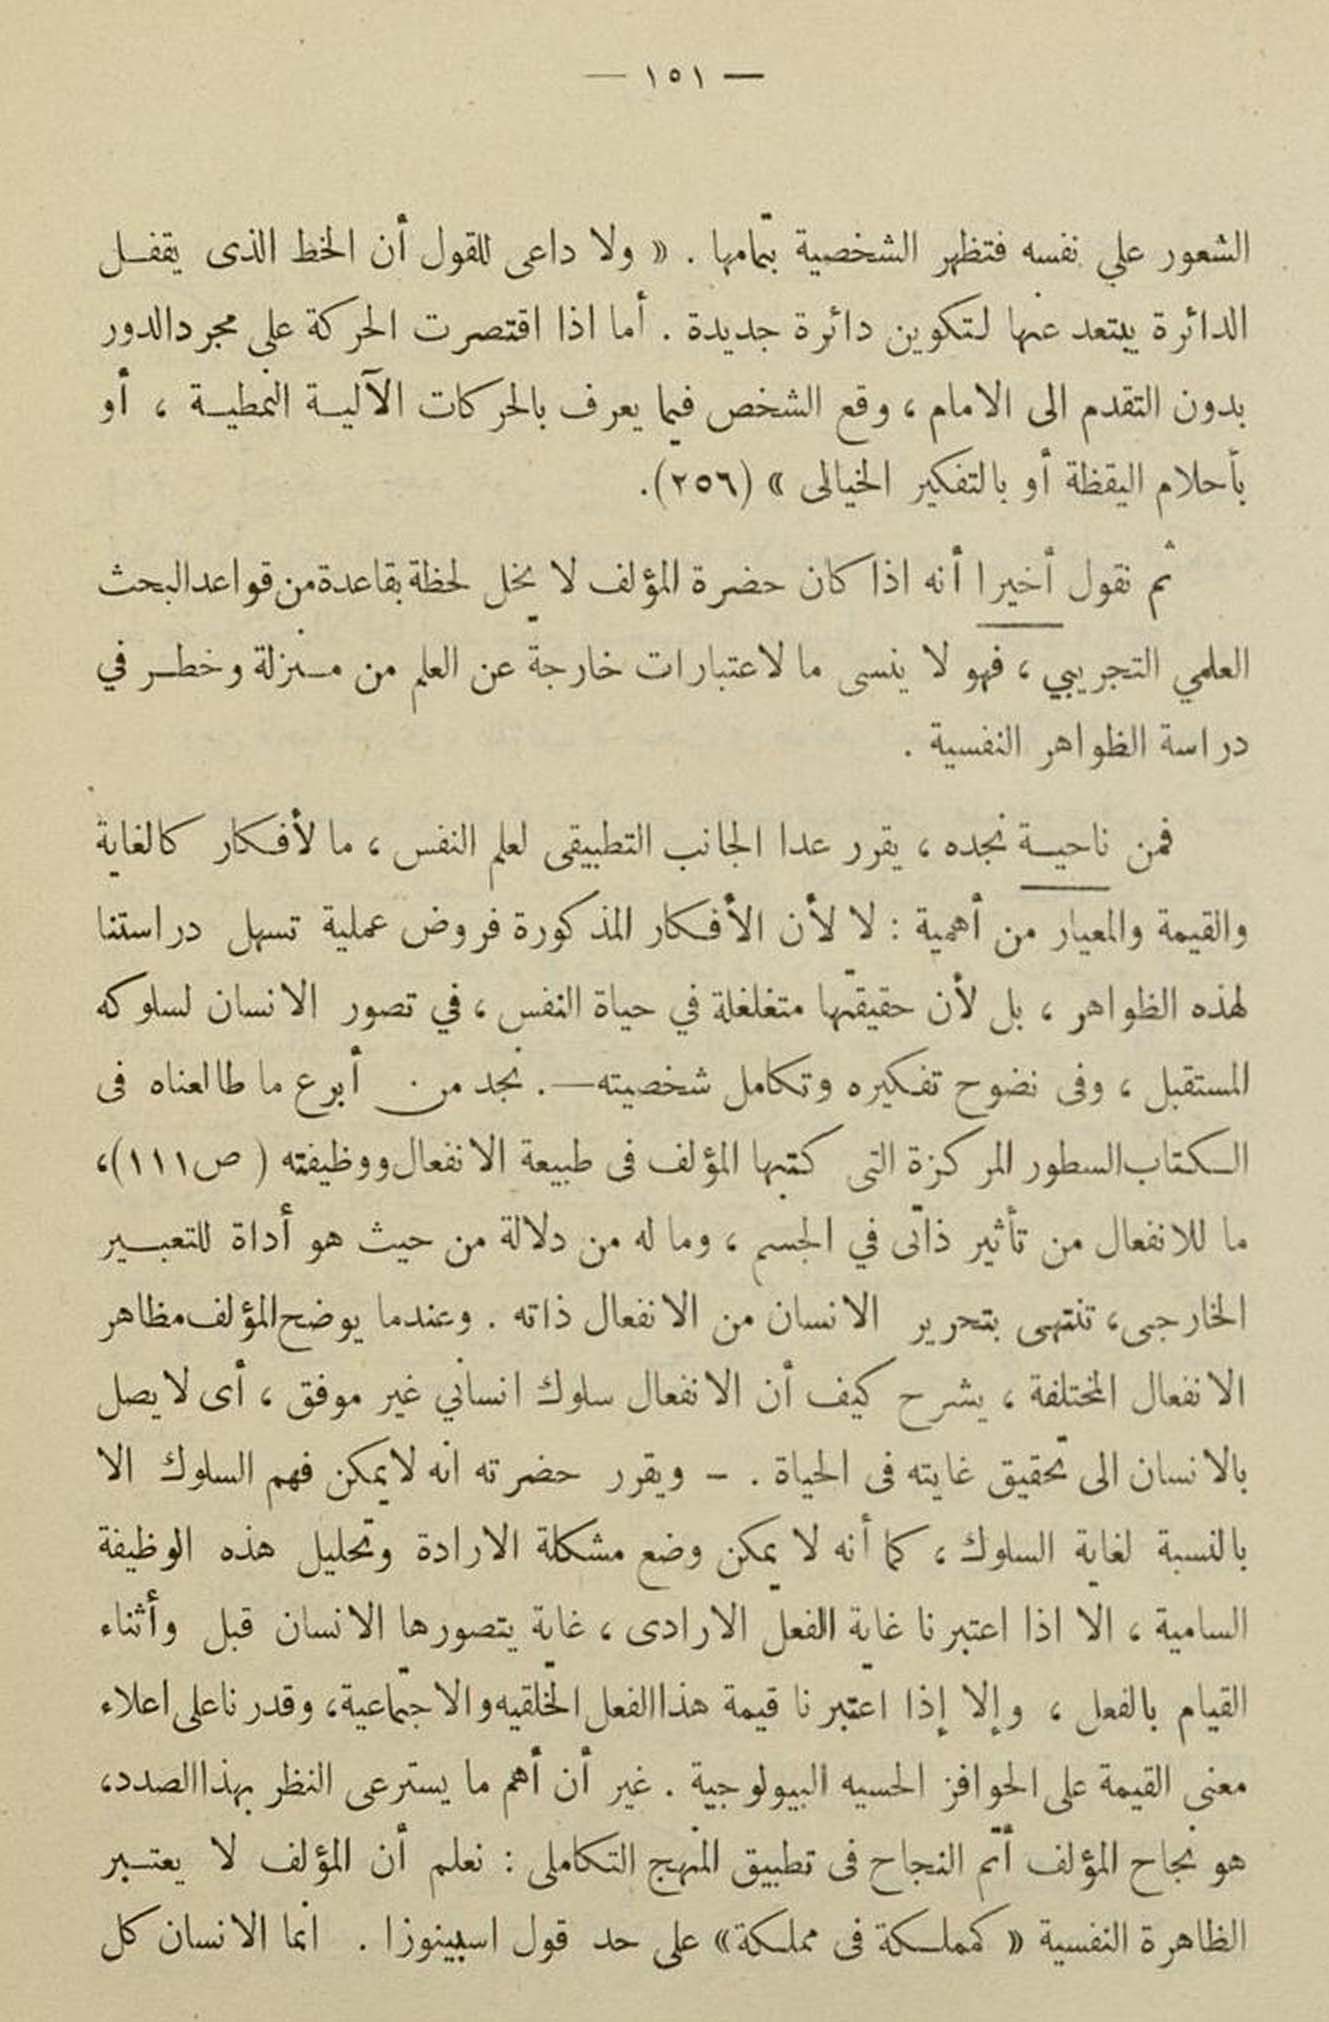 — ١٥١ —
الشعور علي نفسه فتظهر الشخصية بتمامها . « ولا داعى للقول أن الخط الذى يقفل
الدائرة يبتعد عنها لتكوين دائرة جديدة . أما اذا اقتصرت الحركة على مجرد الدور
بدون التقدم الى الامام ، وقع الشخص فيما يعرف بالحركات الآلية النمطية ، أو
بأحلام اليقظة أو بالتفكير الخيالى » (٢٥٦).
ثم نقول أخيرا أنه اذا كان حضرة المؤلف لا يخل لحظة بقاعدة من قواعد البحث
العلمي التجريبي ، فهو لا ينسى ما لاعتبارات خارجة عن العلم من منزلة وخطر في
دراسة الظواهر النفسية .
فمن ناحية نجده ، يقرر عدا الجانب التطبيقى لعلم النفس ، ما لأفكار كالغاية
والقيمة والمعيار من أهمية : لا لأن الأفكار المذكورة فروض عملية تسهل دراستنا
لهذه الظواهر ، بل لأن حقيقتها متغلغلة في حياة النفس ، في تصور الانسان لسلوكه
المستقبل ، وفى نضوح تفكيره وتكامل شخصيته —. نجد من أبرع ما طالعناه فى
الكتاب السطور المركزة التى كتبها المؤلف فى طبيعة الانفعال ووظيفته ( ص ١١١)،
ما للانفعال من تأثير ذاتى في الجسم ، وما له من دلالة من حيث هو أداة للتعبير
الخارجى، تنتهى بتحرير الانسان من الانفعال ذاته . وعندما يوضح المؤلف مظاهر
الانفعال المختلفة ، يشرح كيف أن الانفعال سلوك انساني غير موفق ، أى لا يصل
بالانسان الى تحقيق غايته فى الحياة . – ويقرر حضرته انه لا يمكن فهم السلوك الا
بالنسبة لغاية السلوك ، كما أنه لا يمكن وضع مشكلة الارادة وتحليل هذه الوظيفة
السامية ، الا اذا اعتبرنا غاية الفعل الارادى ، غاية يتصورها الانسان قبل وأثناء
القيام بالفعل ، وإلا إذا اعتبرنا قيمة هذا الفعل الخلقيه والاجتماعية، وقدرنا على اعلاء
معنى القيمة على الحوافز الحسيه البيولوجية . غير أن أهم ما يسترعى النظر بهذا الصدد،
هو نجاح المؤلف أتم النجاح فى تطبيق المنهج التكاملى : نعلم أن المؤلف لا يعتبر
الظاهرة النفسية « كمملكة فى مملكة» على حد قول اسبينوزا . انما الانسان كل